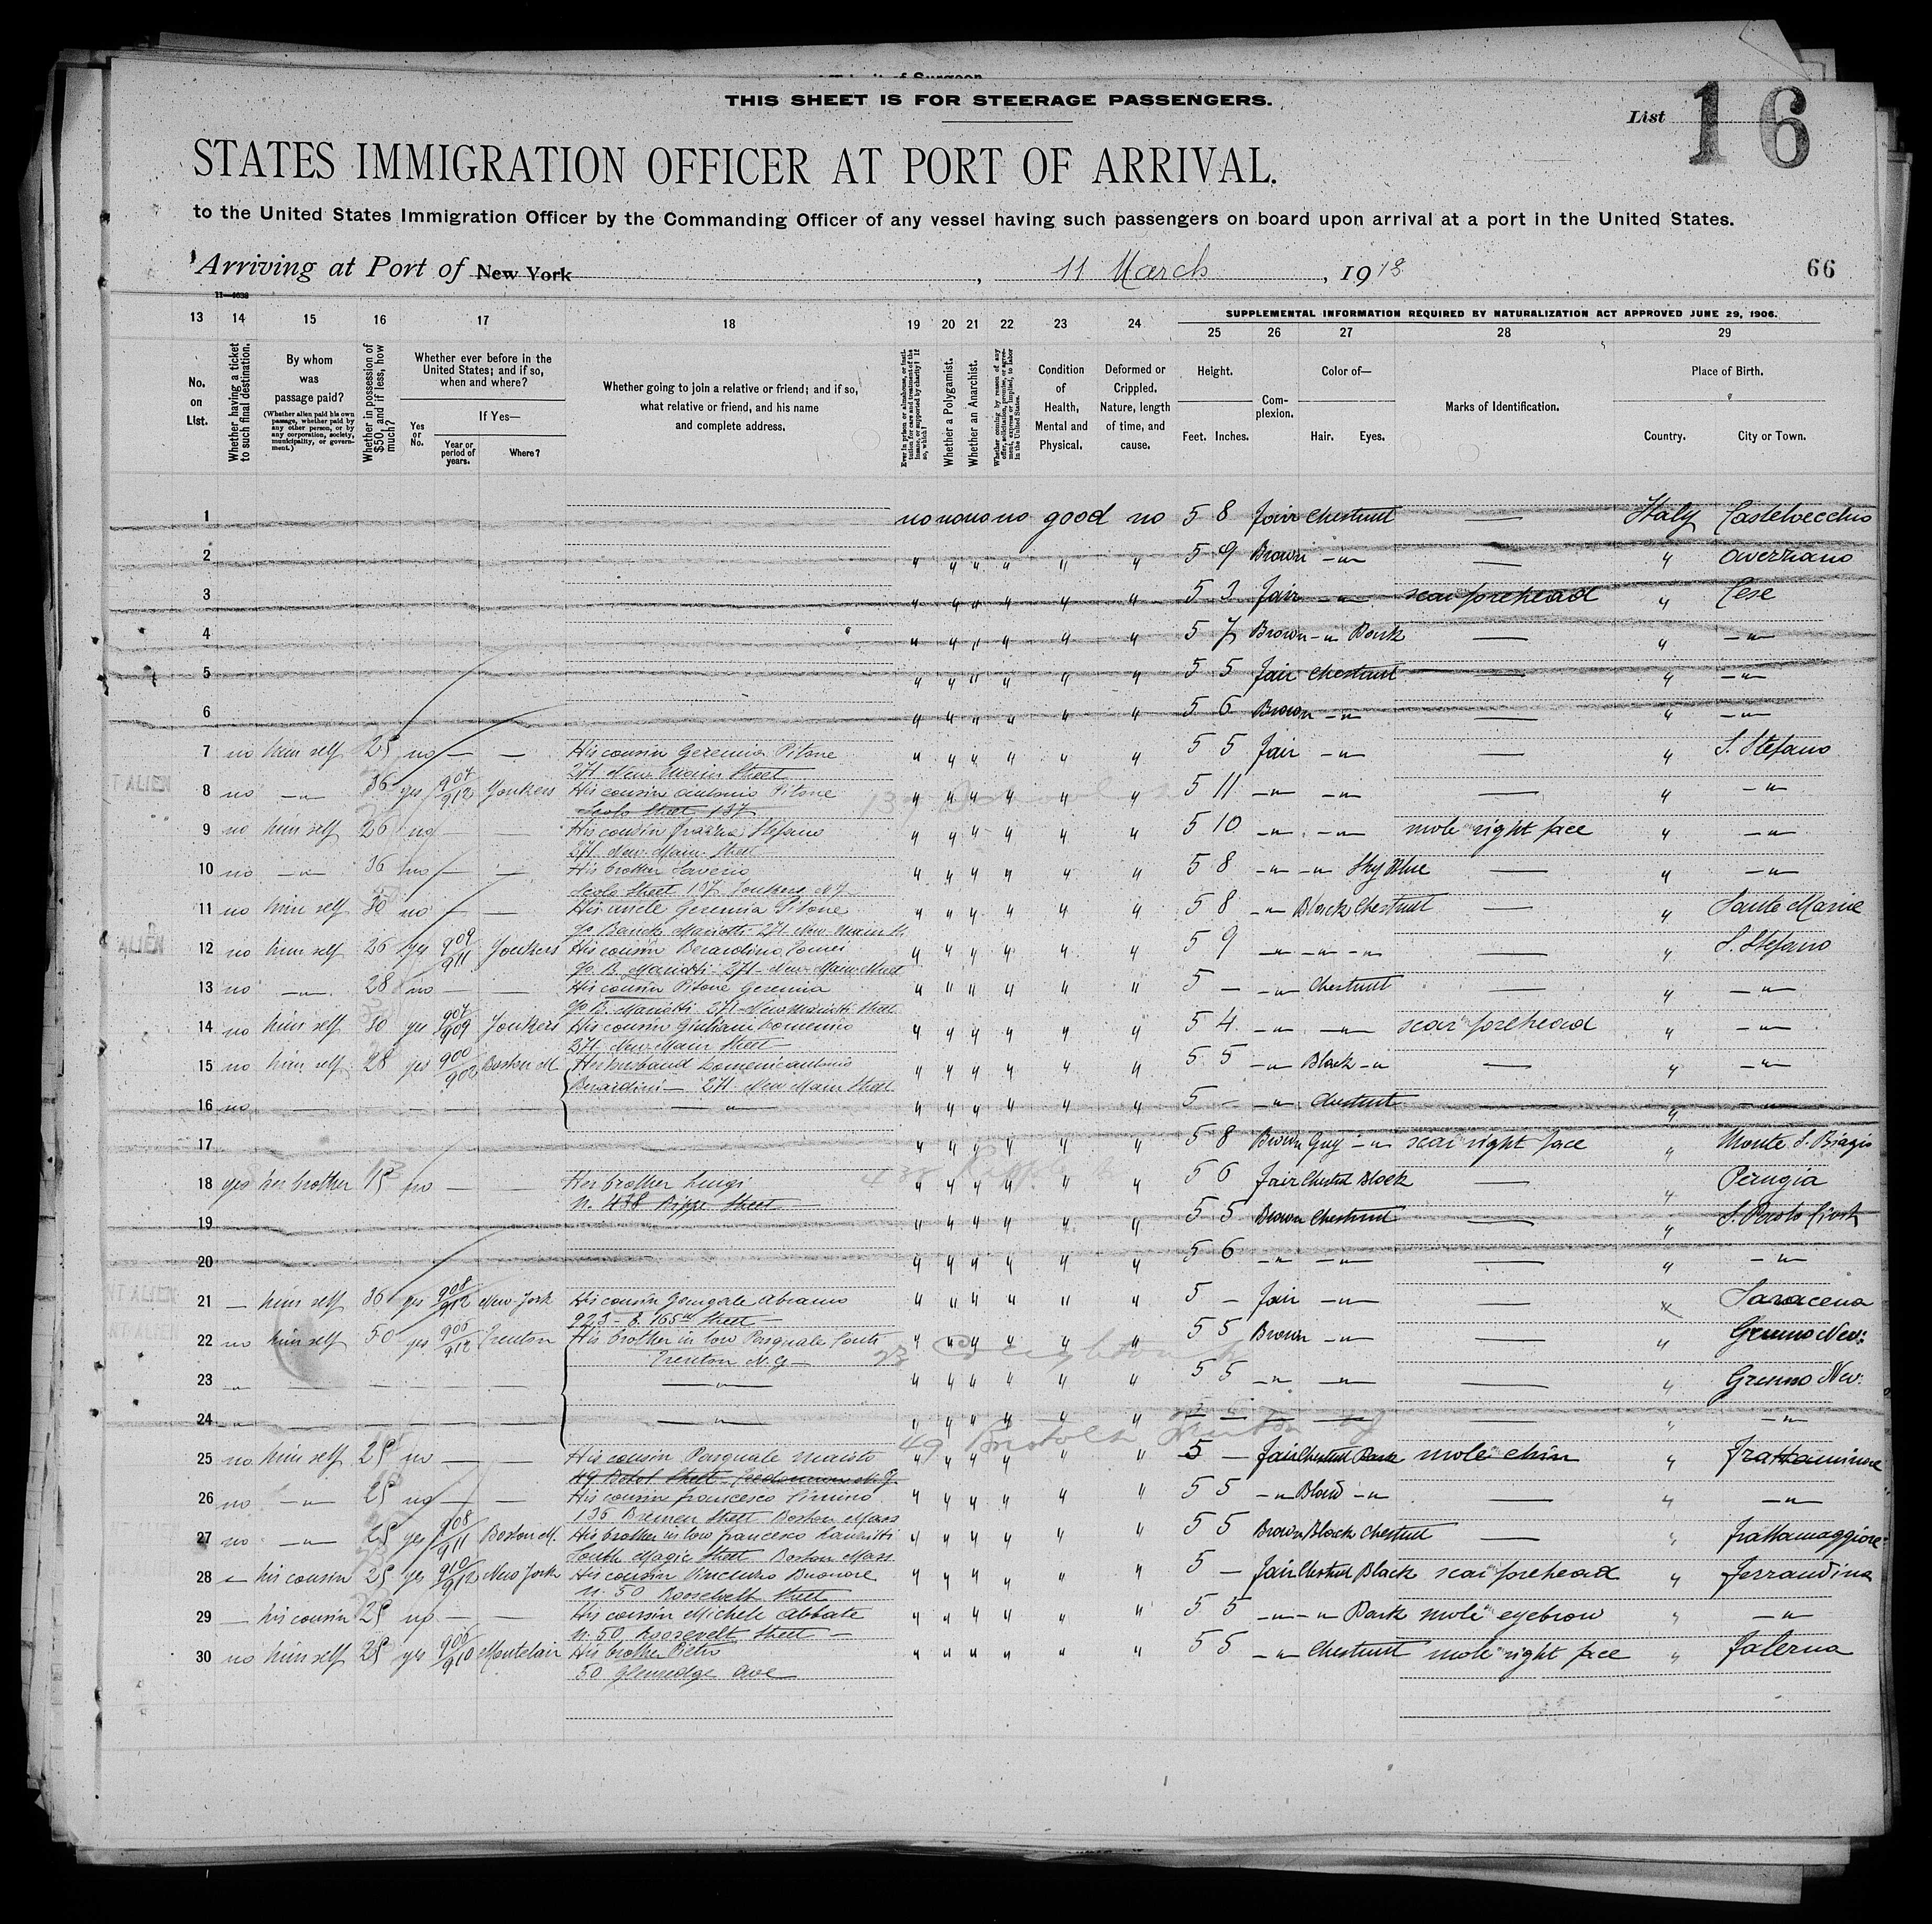 THIS SHEET IS FOR STEERAGE PASSENGERS.
List 16
STATES IMMIGRATION OFFICER AT PORT OF ARRIVAL.
to the United States Immigration Officer by the Commanding Officer of any vessel having such passengers on board upon arrival at a port in the United States.
Arriving at Port of New York, 11 March, 1913 66
SUPPLEMENTAL INFORMATION REQUIRED BY NATURALIZATION ACT APPROVED JUNE 29, 1906.
13 14 15 16 17 18 19 20 21 22 23 24 25 26 27 28 29
No. on List.
Whether having a ticket to such final destination.
By whom was passage paid?
(Whether alien paid his own passage, whether paid by any other person, or by any corporation, society, municipality, or government.)
Whether in possession of $50, and if less, how much?
Whether ever before in the United States; and if so, when and where?
Yes or No.
If Yes—
Year or period of years.
Where?
Whether going to join a relative or friend; and if so, what relative or friend, and his name and complete address.
Ever in prison or almshouse, or institution for care and treatment of the insane, or supported by charity? If so, which?
Whether a Polygamist.
Whether an Anarchist.
Whether coming by reason of any offer, solicitation, promise, or agreement, express or implied, to labor in the United States.
Condition of Health, Mental and Physical.
Deformed or Crippled. Nature, length of time, and cause.
Height.
Feet. Inches.
Complexion.
Color of—
Hair. Eyes.
Marks of Identification.
Place of Birth.
Country. City or Town.
1 no no no no good no 5 8 Fair Chestnut — Italy Castelvecchio
2 " " " " " " 5 9 Brown -"- — " Avezzano
3 " " " " " " 5 3 Fair -"- scar forehead " Cese
4 " " " " " " 5 7 Brown -"- Dark — " -"-
5 " " " " " " 5 5 Fair Chestnut — " -"-
6 " " " " " " 5 6 Brown -"- — " -"-
7 no him self 25 no — — His cousin Geremia Pitone " " " " " " 5 5 Fair -"- — " S. Stefano
271 New Main Street
8 no -"- 36 yes 907/912 Yonkers His cousin Antonio Pitone " " " " " " 5 11 -"- -"- — " -"-
Scolo Street 137
9 no him self 26 no — — His cousin Stefano " " " " " " 5 10 -"- -"- mole right face " -"-
271 New Main Street
10 no -"- 36 no — — His brother Saverio " " " " " " 5 8 -"- -"- Sky Blue — " -"-
Scolo Street 137 Yonkers N.Y.
11 no him self 30 no — — His uncle Geremia Pitone " " " " " " 5 8 -"- Black Chestnut — " Sante Marie
c/o Banck Mariotti 271 New Main St
12 no him self 26 yes 909/911 Yonkers His cousin Berardino " " " " " " 5 9 -"- -"- -"- — " S. Stefano
c/o B. Mariotti 271 New Main Street
13 no -"- 28 no — — His cousin Pitone Geremia " " " " " " 5 — -"- Chestnut — " -"-
c/o B. Mariotti 271 New Street
14 no him self 30 yes 907/909 Yonkers His cousin Giuliani Domenico " " " " " " 5 4 -"- -"- scar forehead " -"-
271 New Main Street
15 no him self 28 yes 900/902 Boston M. Her husband Domenicantonio " " " " " " 5 5 -"- Black -"- — " -"-
Berardini — 271 New Main Street
16 no — — — — — -"- " " " " " " 5 — -"- Chestnut — " -"-
17 " " " " " " 5 8 Brown Grey -"- scar right face " Monte S. Biagio
18 yes her brother 15 no — — Her brother Luigi " " " " " " 5 6 Fair Chestnut Black — " Perugia
N. 438 Street
19 " " " " " " 5 5 Brown Chestnut — "
20 " " " " " " 5 6 -"- -"- — " -"-
21 — him self 36 yes 908/912 New-York His cousin Abramo " " " " " " 5 — Fair -"- — " Saracena
923 - E. 165th Street
22 no himself 50 yes 906/912 Trenton His brother in low Pasquale " " " " " " 5 5 Brown -"- — " Grumo Nev:
Trenton N.J.
23 -"- — — — — — -"- " " " " " " 5 5 -"- -"- — " Grumo Nev:
24 -"- — — — — — -"- " " " " " " — " -"-
25 no himself 25 no — — His cousin Pasquale " " " " " " 5 — Fair Chestnut Dark mole chin " Frattaminore
26 no -"- 25 no — — His cousin Francesco Cimino " " " " " " 5 5 -"- -"- — " -"-
136 Bremen Street Boston Mass
27 no -"- 25 yes 908/911 Boston M. His brother in low Francesco " " " " " " 5 5 Brown Black Chestnut — " Frattamaggiore
South Magie Street Boston Mass
28 — his cousin 25 yes 910/912 New York His cousin Vincenzo Buonore " " " " " " 5 — Fair Chestnut Black scar forehead " Ferrandina
N. 50 Roosevelt Street
29 — his cousin 25 no — — His cousin Michele Abbate " " " " " " 5 5 -"- -"- Dark mole eyebrow " -"-
N. 50 Roosevelt Street
30 no himself 25 yes 906/910 Montclair His brother Pietro " " " " " " 5 5 -"- Chestnut mole right face " Falerna
50 Glenredge Ave